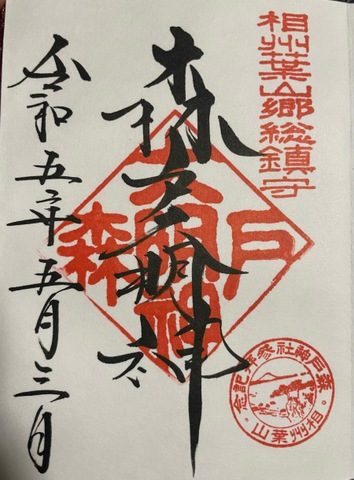 相州葉山郷総鎮守
森戸大明神
森戸大明神
令和五年五月三日
森戸神社参拝記念
相州葉山